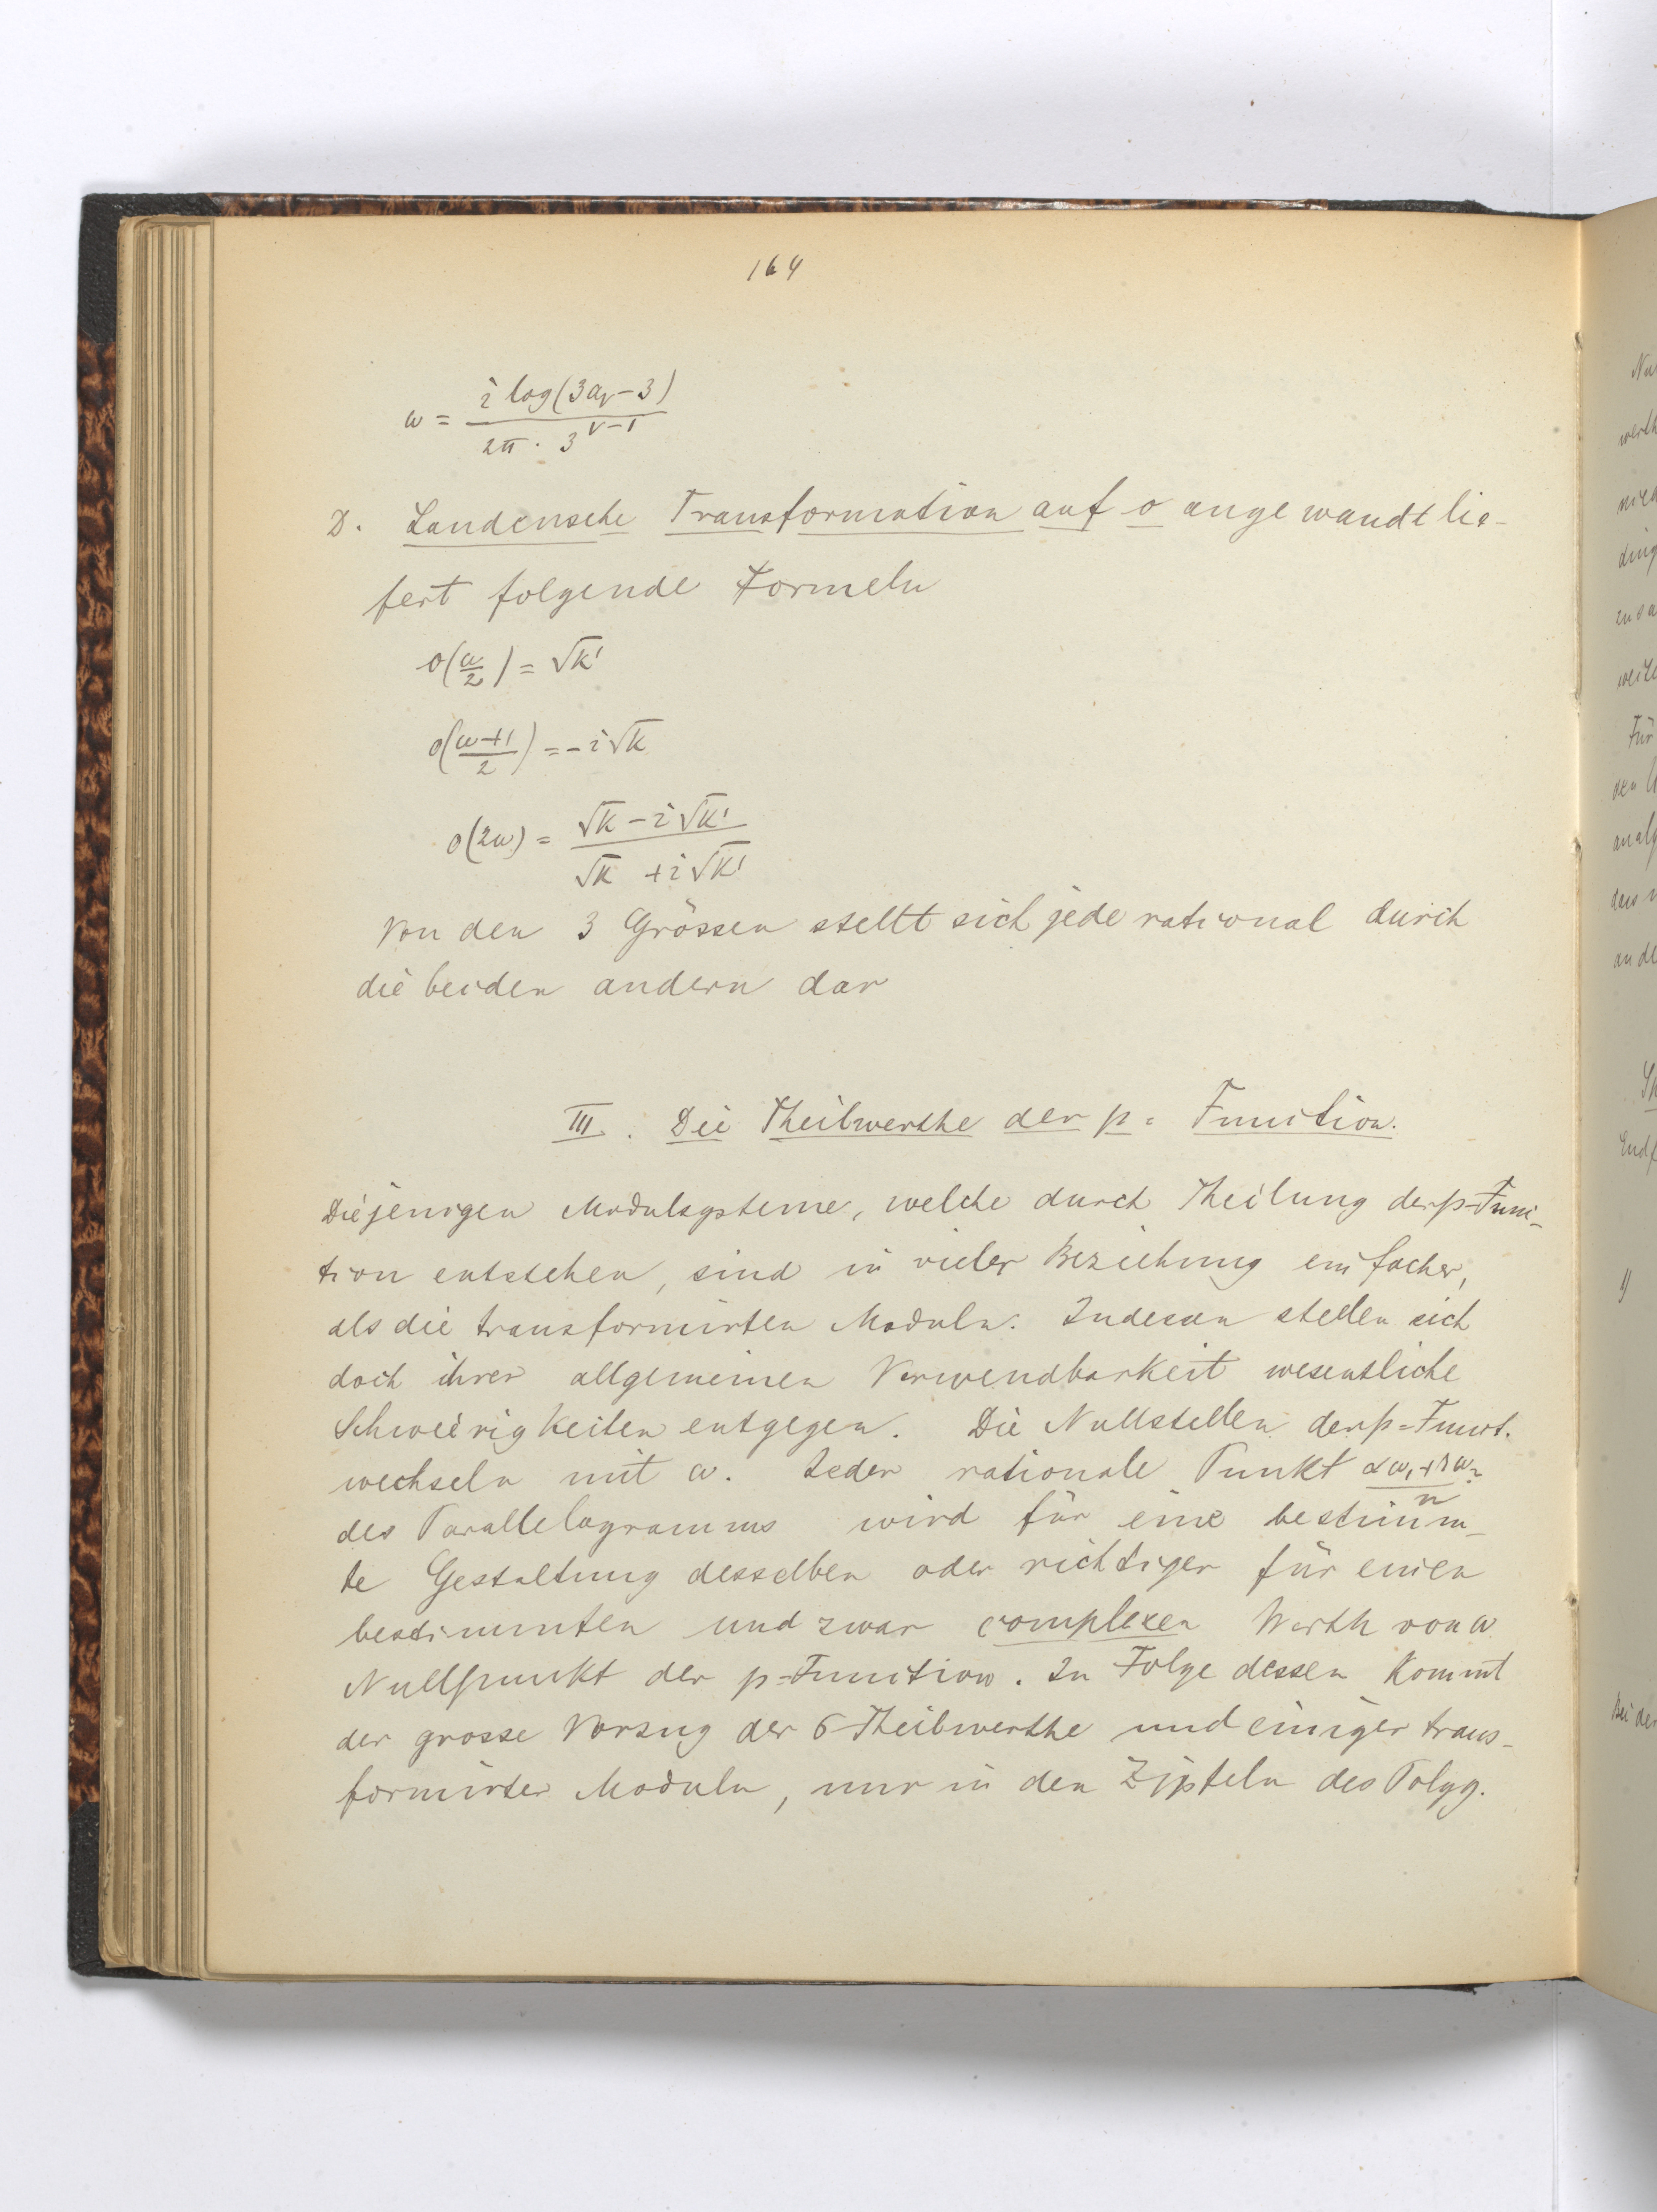 164
ω = i log(3aᵥ-3) / 2π · 3^(ν-1)
D. Landensche Transformation auf o angewandt lie-
fert folgende Formeln
o(ω/2) = √k'
o((ω+1)/2) = -i√k
o(2ω) = (√k - i√k') / (√k + i√k')
Von den 3 Grössen stellt sich jede rational durch
die beiden andern dar
III. Die Theilwerthe der p-Function.
Diejenigen Modulsysteme, welche durch Theilung der p-Func-
tion entstehen, sind in vieler Beziehung einfacher,
als die transformirten Moduln. Indessen stellen sich
doch ihrer allgemeinen Verwendbarkeit wesentliche
Schwierigkeiten entgegen. Die Nullstellen der p-Funct.
wechseln mit ω. Jeder rationale Punkt (αω₁+βω₂)/n
des Parallelogramms wird für eine bestimm-
te Gestaltung desselben oder richtiger für einen
bestimmten und zwar complexen Werth von ω
Nullpunkt der p-Function. In Folge dessen kommt
der grosse Vorzug der σ-Theilwerthe und einiger trans-
formirter Moduln, nur in den Zipfeln des Polyg.